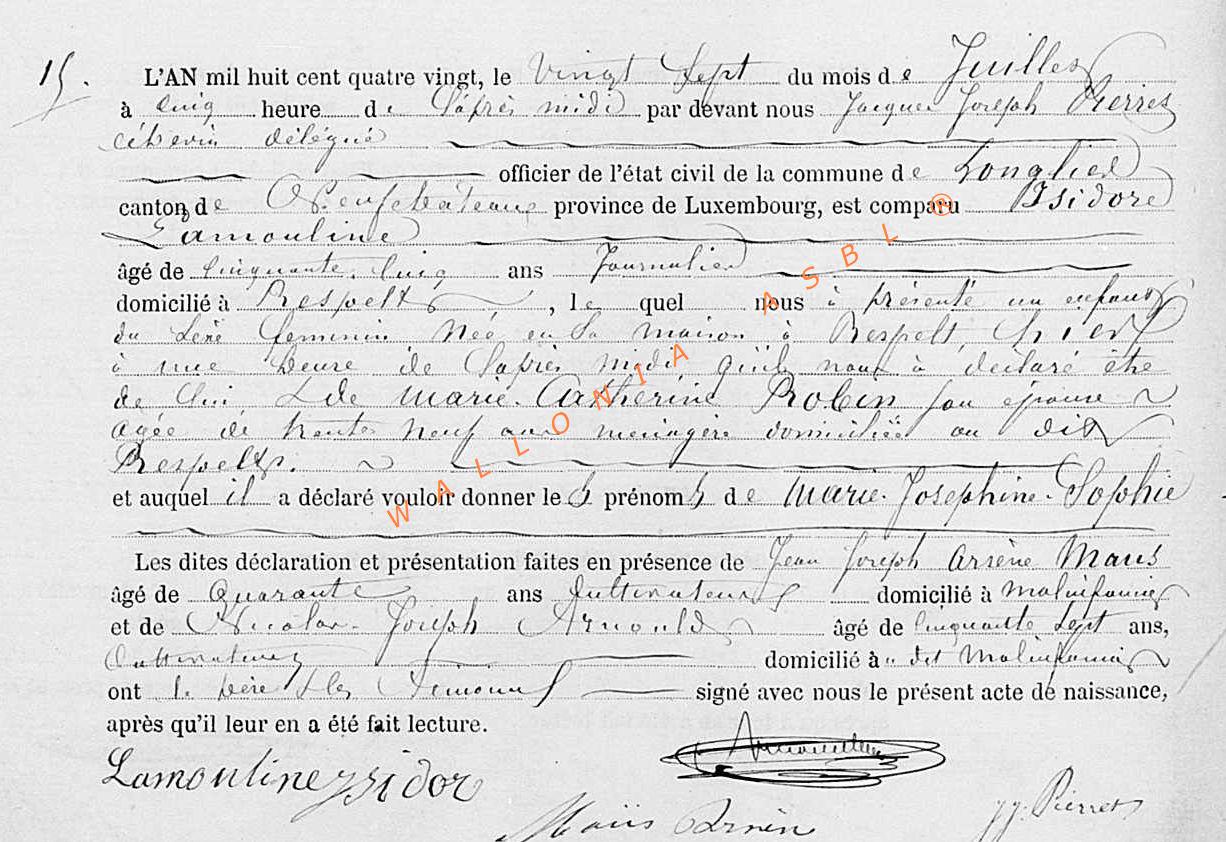 15.
L'AN mil huit cent quatre vingt, le vingt Sept du mois de Juillet
à cinq heure de l'après midi par devant nous Jacques Joseph Pierret
échevin délégué
officier de l'état civil de la commune de Longlier
canton de Neufchâteau province de Luxembourg, est comparu Isidore
Lamouline
âgé de Cinquante Cinq ans Journalier
domicilié à Respelt, le quel nous à présenté un enfant
du sexe feminin née en Sa maison à Respelt, hier
à une heure de l'après midi qu'il nous à déclaré être
de lui & de Marie Catherine Robin son épouse
agée de trente neuf ans menagère domiciliée au dit
Respelt.
et auquel il a déclaré vouloir donner les prénoms de Marie Josephine Sophie
Les dites déclaration et présentation faites en présence de Jean Joseph Arsène Maus
âgé de Quarante ans Cultivateur domicilié à Molinfaing
et de Nicolas Joseph Arnould âgé de Cinquante Sept ans,
Cultivateur domicilié à dit Molinfaing
ont le père & les témoins signé avec nous le présent acte de naissance,
après qu'il leur en a été fait lecture.
Lamouline ysidor
Maüs Arsèn
jj. Pierret
WALLONIA ASBL ®